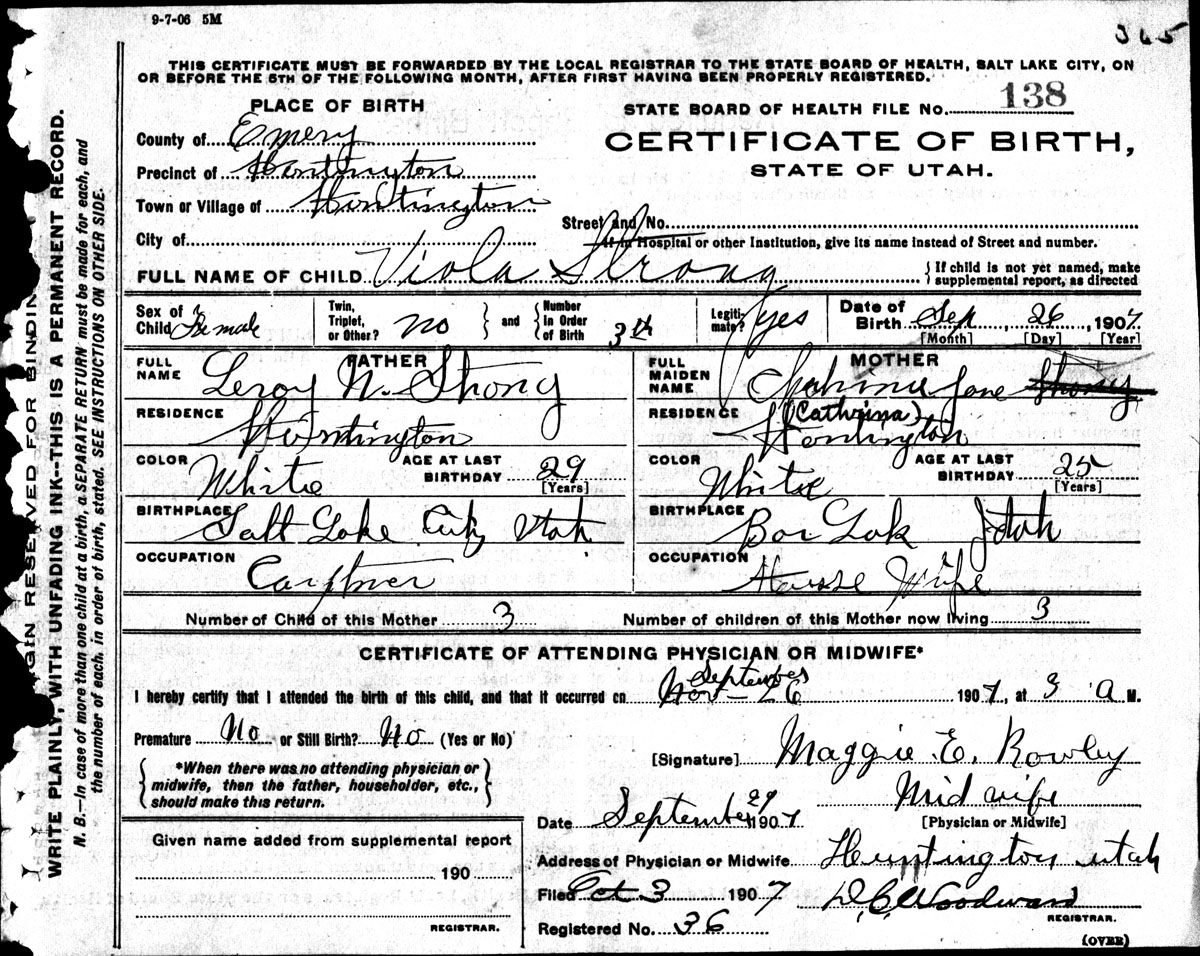 9-7-06 5M
365
THIS CERTIFICATE MUST BE FORWARDED BY THE LOCAL REGISTRAR TO THE STATE BOARD OF HEALTH, SALT LAKE CITY, ON
OR BEFORE THE 5TH OF THE FOLLOWING MONTH, AFTER FIRST HAVING BEEN PROPERLY REGISTERED.
PLACE OF BIRTH
STATE BOARD OF HEALTH FILE No. 138
County of Emery
CERTIFICATE OF BIRTH,
STATE OF UTAH.
Precinct of Huntington
Town or Village of Huntington
Street and No.
City of
If in Hospital or other Institution, give its name instead of Street and number.
FULL NAME OF CHILD Viola Strong
{ If child is not yet named, make
supplemental report, as directed
Sex of Child Female
Twin, Triplet, or Other? No } and { Number In Order of Birth 3th
Legiti-mate? yes
Date of Birth Sep, 26, 1907
[Month] [Day] [Year]
FATHER
FULL NAME Leroy N. Strong
MOTHER
FULL MAIDEN NAME Jane Strong
(Cathrina)
RESIDENCE Huntington
RESIDENCE Huntington
COLOR White
AGE AT LAST BIRTHDAY 29 [Years]
COLOR White
AGE AT LAST BIRTHDAY 25 [Years]
BIRTHPLACE Salt Lake City Utah
BIRTHPLACE Bor Lak Utah
OCCUPATION
OCCUPATION House Wife
Number of Child of this Mother 3
Number of children of this Mother now living 3
CERTIFICATE OF ATTENDING PHYSICIAN OR MIDWIFE*
September
I hereby certify that I attended the birth of this child, and that it occurred on Nov - 26 1907, at 3 A M.
Premature No or Still Birth? No (Yes or No)
[Signature] Maggie E. Rowley
{ *When there was no attending physician or
midwife, then the father, householder, etc.,
should make this return. }
Mid wife
[Physician or Midwife]
Date September 29 1907
Given name added from supplemental report
190
REGISTRAR.
Address of Physician or Midwife Huntington utah
Filed Oct 3 1907 D, C, Woodward
REGISTRAR.
Registered No. 36
(OVER)
MARGIN RESERVED FOR BINDING
WRITE PLAINLY, WITH UNFADING INK--THIS IS A PERMANENT RECORD.
N. B.—In case of more than one child at birth, a SEPARATE RETURN must be made for each, and
the number of each, in order of birth, stated. SEE INSTRUCTIONS ON OTHER SIDE.